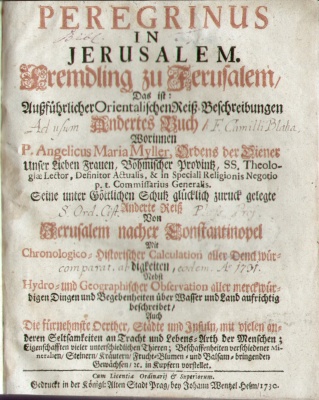 PEREGRINUS
IN
JERUSALEM.
Fremdling zu Jerusalem/
Das ist:
Außführlicher Orientalischen Reiß-Beschreibungen
Andertes Buch/
Ad usum F. Camilli
Worinnen
P. Angelicus Maria Myller, Ordens der Diener
Unser Lieben Frauen, Böhmischer Provintz, SS, Theolo-
giæ Lector, Definitor Actualis, & in Speciali Religionis Negotio
p. t. Commissarius Generalis.
Seine unter Göttlichen Schutz glücklich zuruck gelegte
Anderte Reiß
S. Ord. Cist.
Von
Jerusalem nacher Constantinopel
Mit
Chronologico-Historischer Calculation aller Denckwür-
digkeiten,
comparat. ab eodem Aº 1731.
Nebst
Hydro- und Geographischer Observation aller merckwür-
digen Dingen und Begebenheiten über Wasser und Land aufrichtig
beschreibet/
Auch
Die fürnehmste Oerther, Städte und Insuln, mit vielen an-
deren Seltsamkeiten an Tracht und Lebens-Arth der Menschen;
Eigenschafften vieler unterschiedlichen Thieren; Beschaffenheiten verschiedener Mi-
neralien, Steinern, Kräutern, Frucht-Blumen- und Balsam-bringenden
Gewächsen/ ꝛc. in Kupfern vorstellet.
Cum Licentia Ordinarii & Superiorum.
Gedruckt in der Königl: Alten Stadt Prag/ bey Johann Wentzel Helm/ 1730.